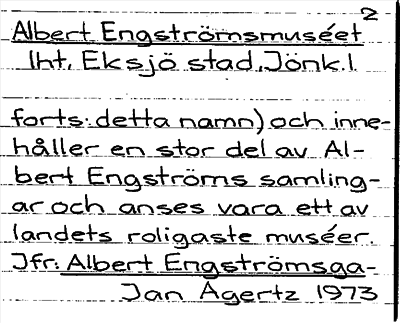 2
Albert Engströmsmuséet
lht, Eksjö stad, Jönk.l
forts: detta namn) och inne-
håller en stor del av Al-
bert Engströms samling-
ar och anses vara ett av
landets roligaste muséer.
Jfr: Albert Engströmsga-
Jan Agertz 1973